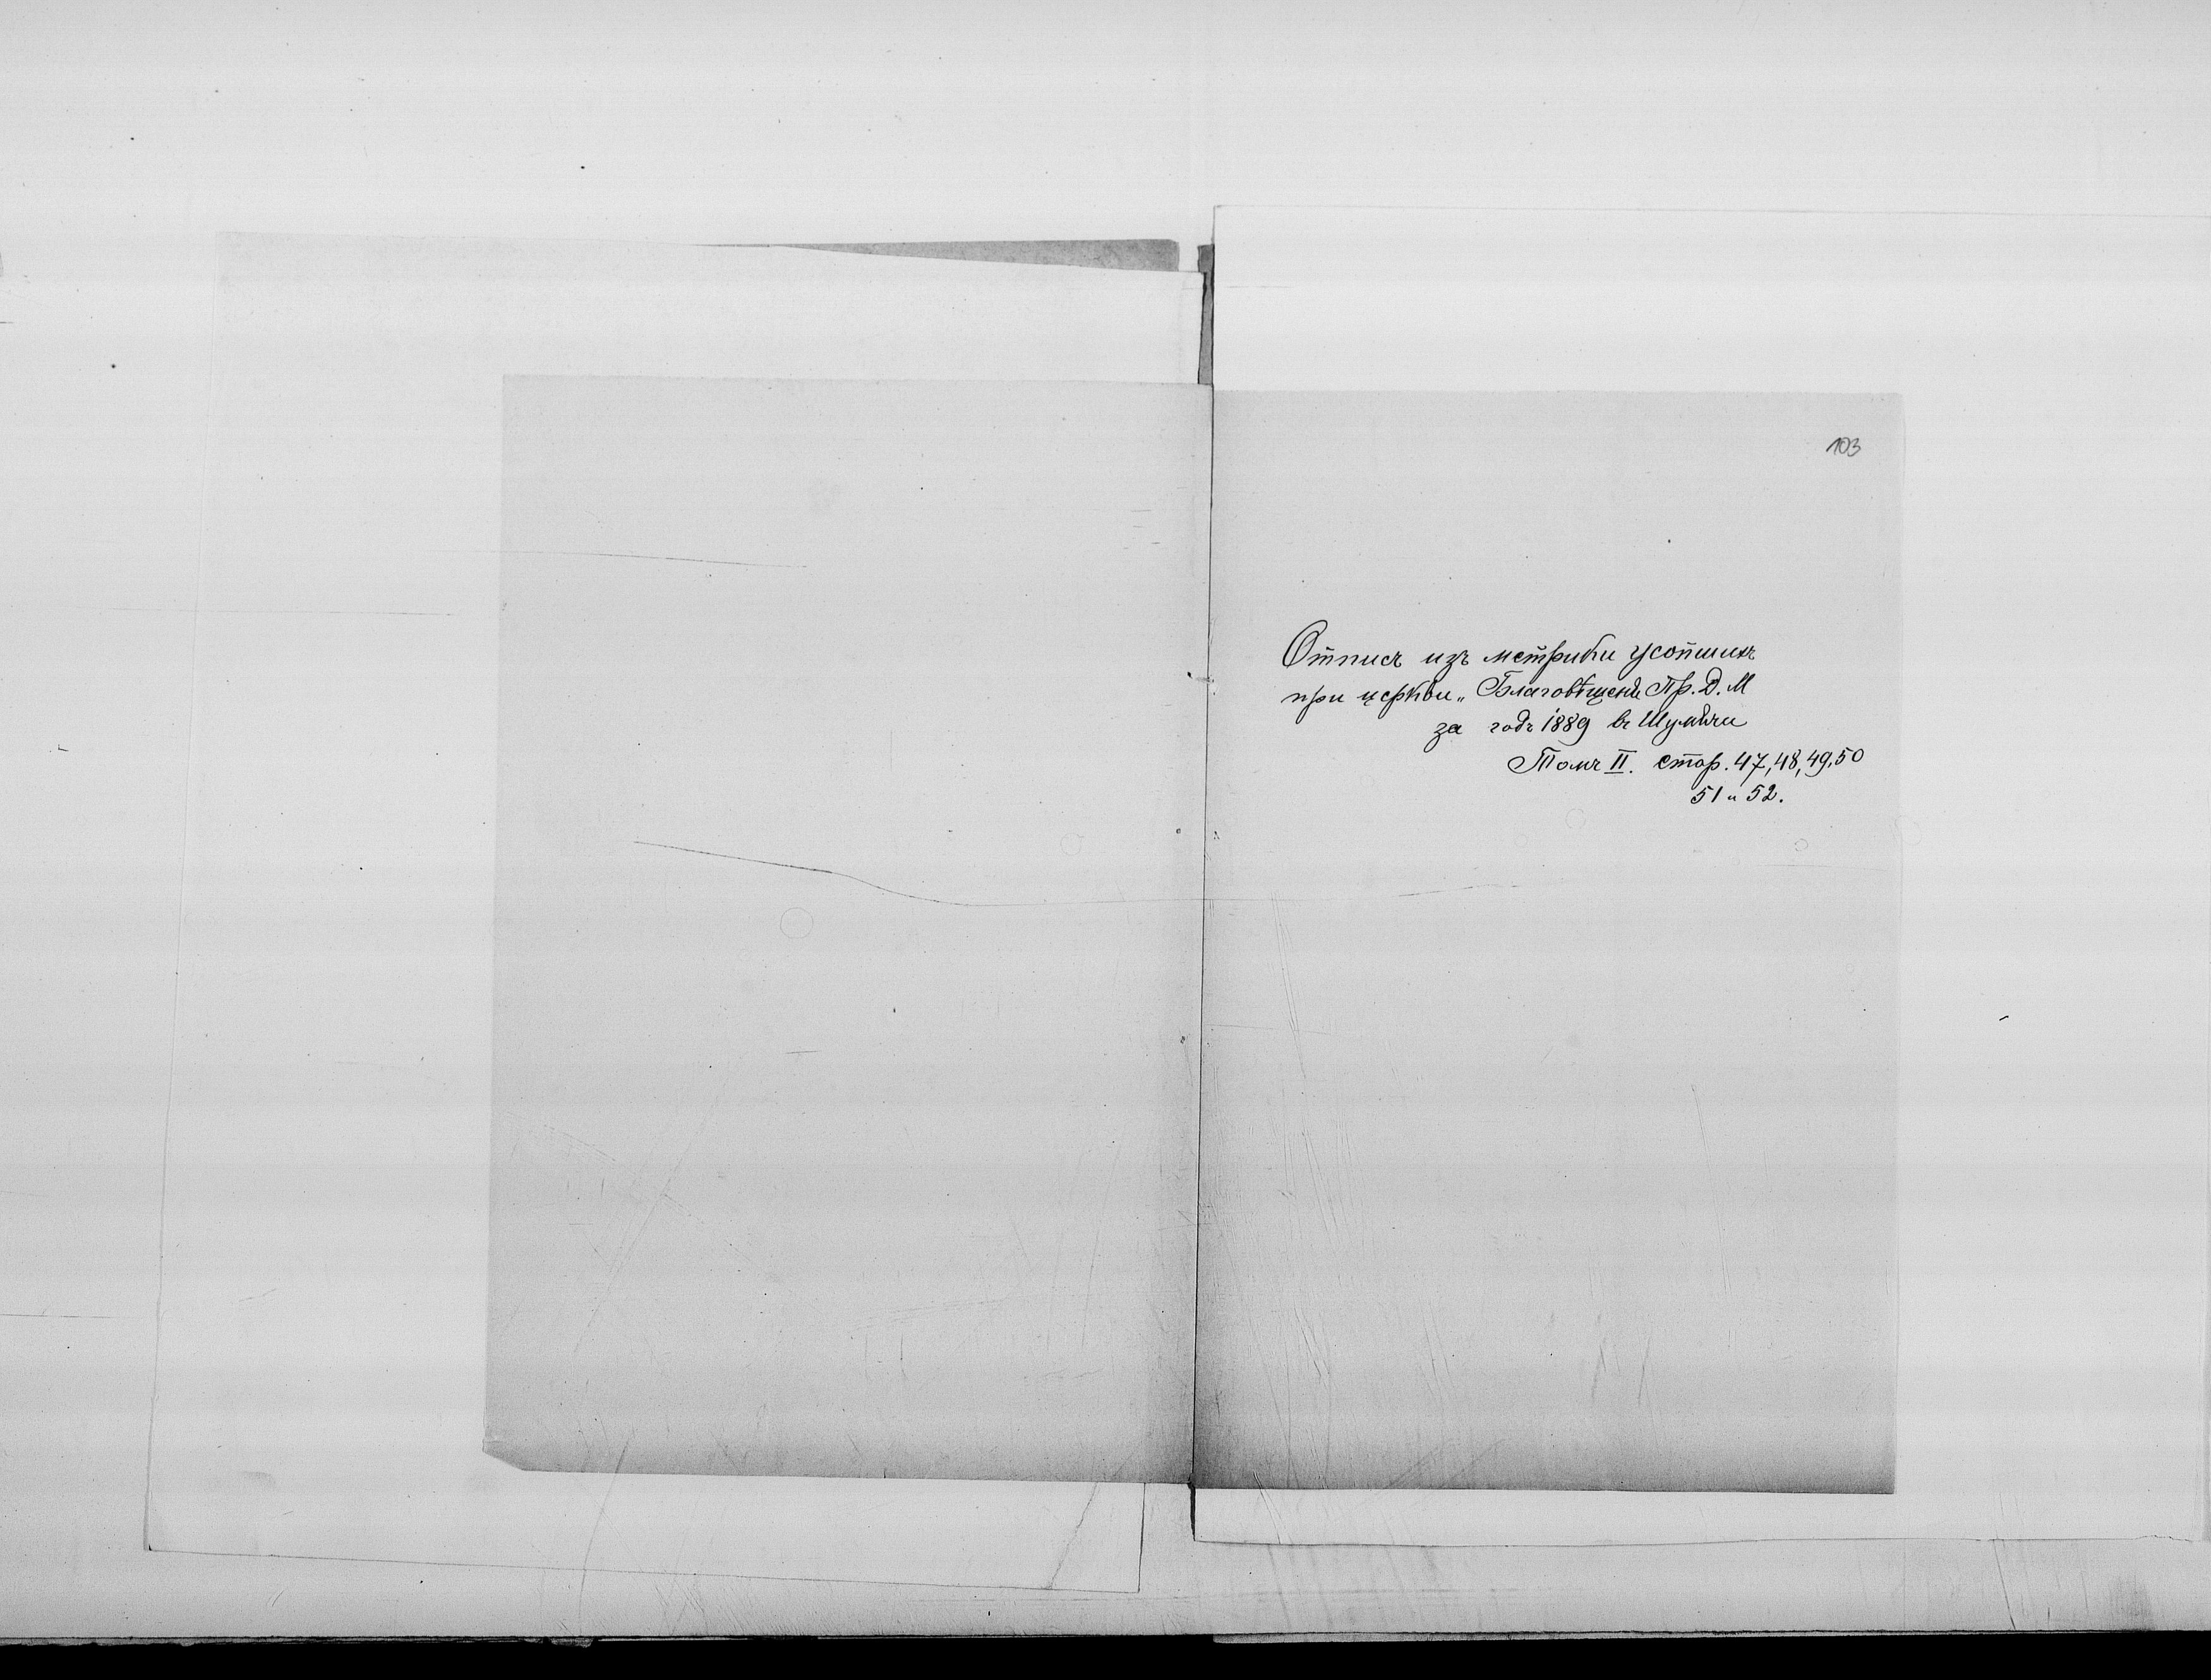 103
Отпись изъ метрики усопшихъ
при церкви „Благовѣщенія Пр. Д. М
за годъ 1889 въ
Томъ II. стор. 47, 48, 49, 50
51 и 52.